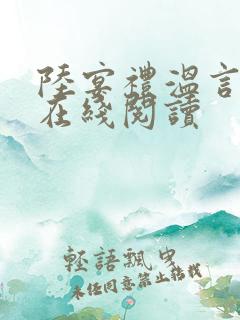 陸宴禮溫言
在綫閱讀
輕語飄曳
未經同意禁止轉載